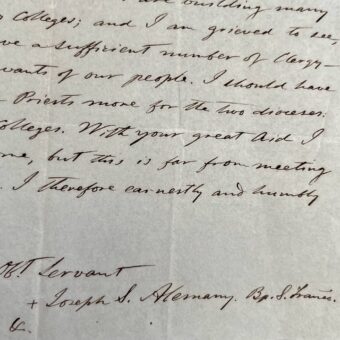 are building many
Colleges; and I am grieved to see,
a sufficient number of Clergy-
wants of our people. I should have
Priests more for the two dioceses.
Colleges. With your great Aid I
, but this is far from meeting
. I therefore earnestly and humbly
Obt. Servant
+ Joseph S. Alemany. Bp. S. Franc.
&.